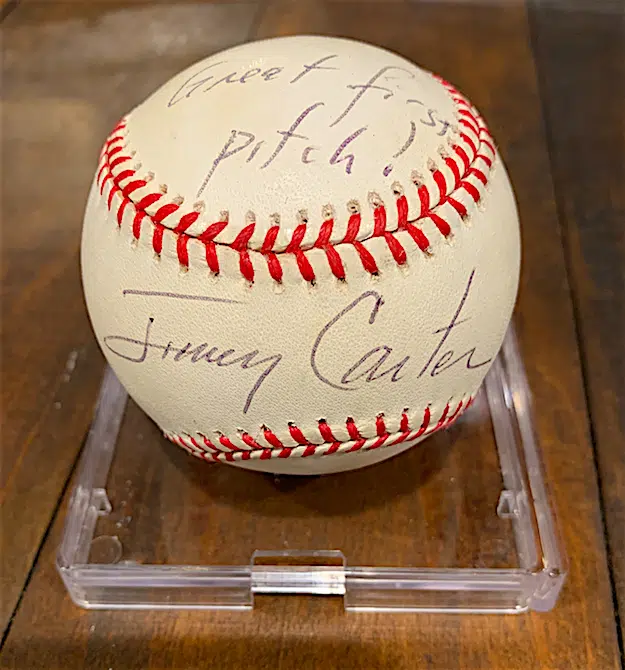 Great first
pitch!
Jimmy Carter